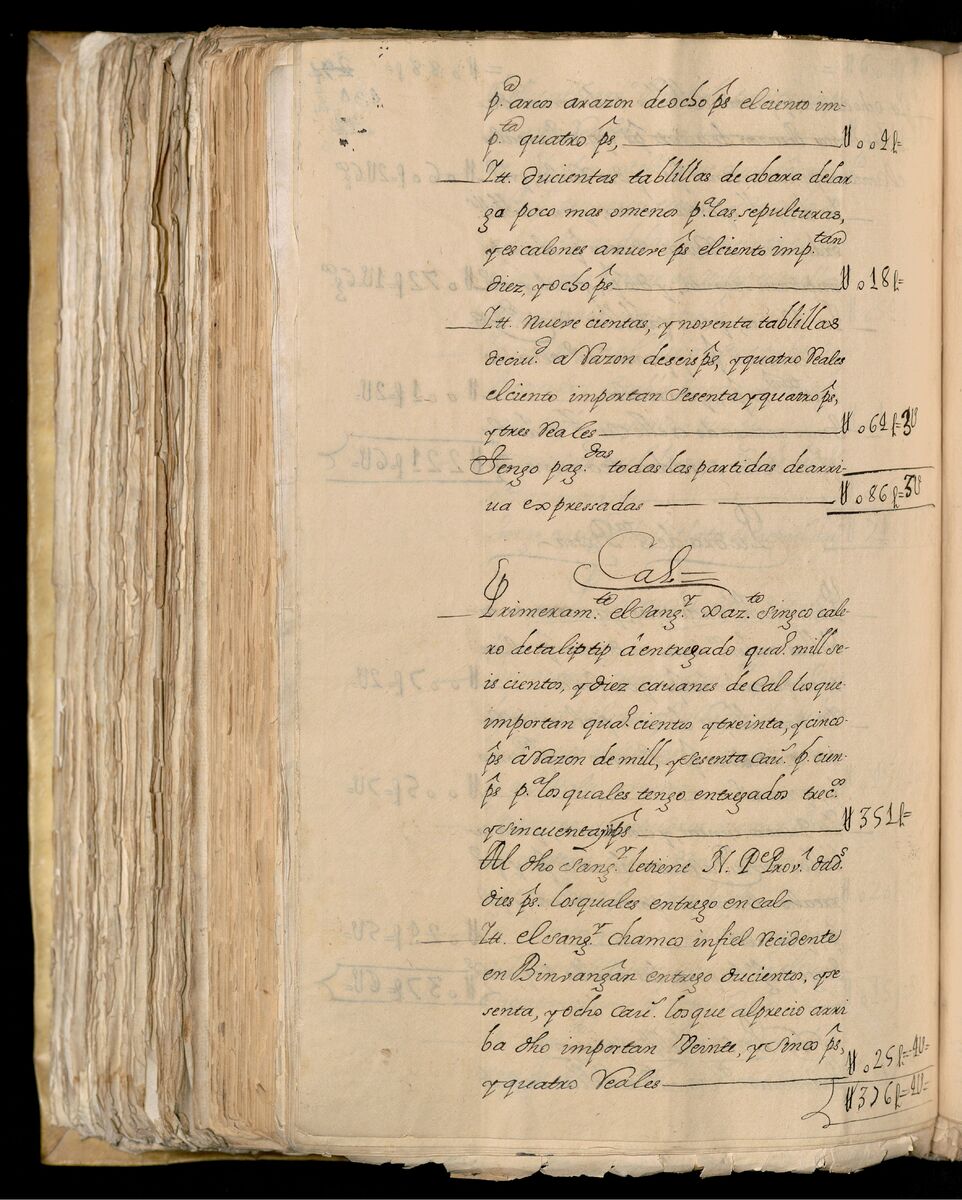 p.ª arcos a razon de ocho p̂s el ciento im-
p.ta quatro p̂s, U004p=
Itt. ducientas tablillas de abara de lar
ga poco mas o menos p.ª las sepulturas,
y escalones a nueve p̂s el ciento imp.tan
diez, y ocho p̂s U018p=
Itt. nueve cientas, y noventa tablillas
de a Razon de seis p̂s, y quatro Reales
el ciento importan sesenta y quatro p̂s,
y tres Reales U064p=3U
Tengo pag.das todas las partidas de arri-
ua expressadas U086p=3U
Cal=
Primeram.te el sang.r Singco cale
ro de taliptip â entregado qua.º mill se-
is cientos, y diez cauanes de Cal los que
importan qua.º cientos y treinta, y cinco
p̂s â Razon de mill, y sesenta cau.s p. cien
p̂s p.ª los quales tengo entregados trec.os
y sincuenta, p̂s U351p=
Al dho sang.r le tiene N. P.e Prov.l dad.s
dies p̂s. los quales entrego en cal
Itt. el sang.r Chamco infiel Recidente
en Binvangan entrego ducientos, y se
senta, y ocho cau.s los que al precio arri
ba dho importan Veinte, y sinco p̂s,
y quatro Reales U025p=4U=
U376p=4U=